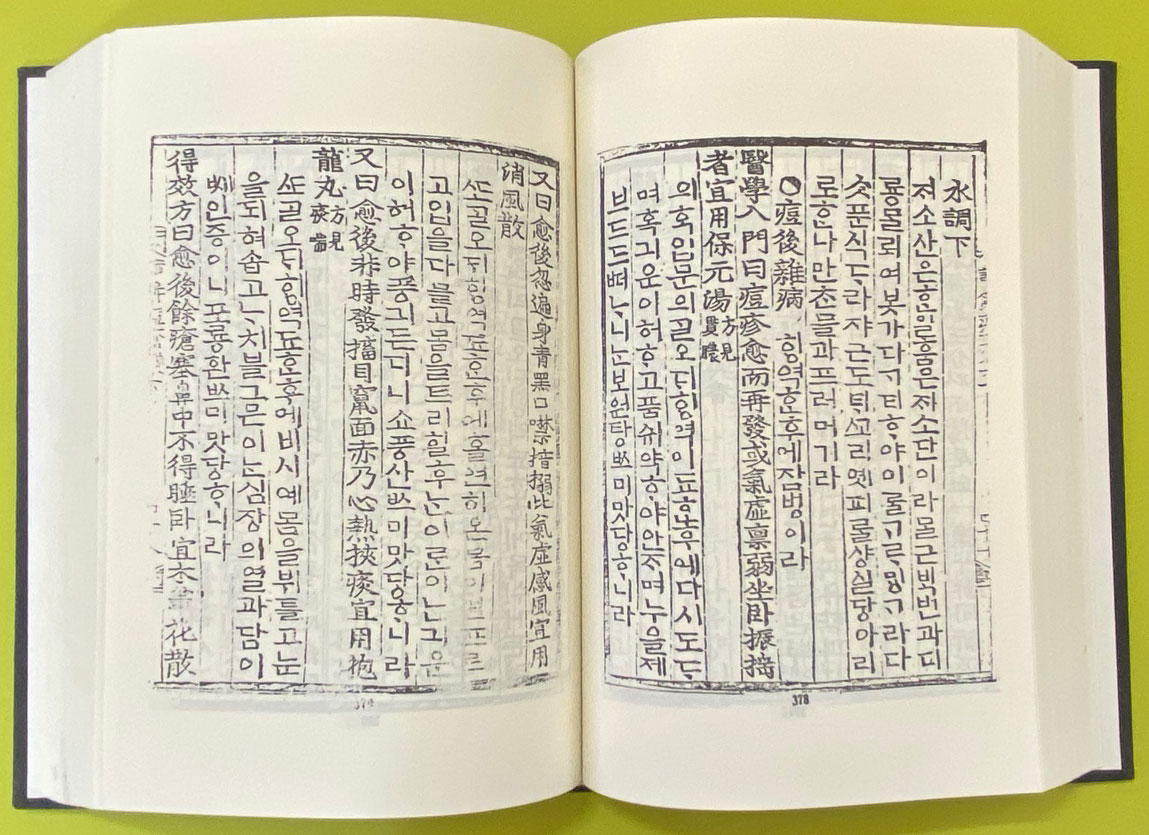 水調下
져소산은ᄒᆞᆫ일홈은ᄌᆞ소단이라믈근빅번과디
룡을 여봇가 ᄒᆞ야이ᄅᆞᆯᄀᆞᄅᆞᄆᆡᆼᄀᆞ라다
ᄉᆞᆺ푼식 ᄃᆞ라쟈근도틱ᄭᅩ리옛피ᄅᆞᆯ
로ᄒᆞᆫ나만조ᄎᆞᆯ과프러머기라
○痘後雜病 힝역ᄒᆞᆫ후에잡병이라
醫學入門曰痘疹愈而再發或氣虛禀弱坐卧振搖
者宜用保元湯方見貫膿
의ᄒᆞᆨ입문의ᄀᆞᆯ오ᄃᆡ힝역이됴ᄒᆞᆫ후에다시도ᄃᆞ
며혹긔운이허ᄒᆞ고품쉬약ᄒᆞ야안ᄌᆞ며누을제
브드드ᄯᅥᄂᆞ니ᄂᆞᆫ보원탕ᄡᅮ미맛당ᄒᆞ니라
378
又曰愈後忽遍身青黑口噤 搦此氣虛感風宜用
消風散
ᄯᅩᄀᆞᆯ오ᄃᆡ힝역됴ᄒᆞᆫ후에홀연히온몸이프르
고입을다믈고몸을트리힐후ᄂᆞᆫ이ᄂᆞᆫ긔운
이허ᄒᆞ야풍긔든디니쇼풍산ᄡᅮ미맛당ᄒᆞ니라
又曰愈後非時發搐目竄面赤乃心熱挾痰宜用抱
龍丸方見
ᄯᅩᄀᆞᆯ오ᄃᆡ힝역됴ᄒᆞᆫ후에비시예몸을뷔틀고눈
을되혀ᄯᅳ고ᄂᆞ치블그믄이ᄂᆞᆫ심장의열과담이
인증이니포룡환ᄡᅮ미맛당ᄒᆞ니라
得效方曰愈後餘瘡塞鼻中不得睡卧宜木 花散
379